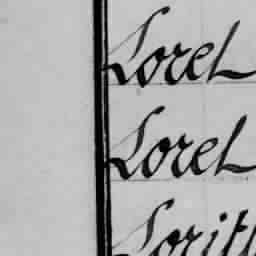 Loret
Loret
Loritt